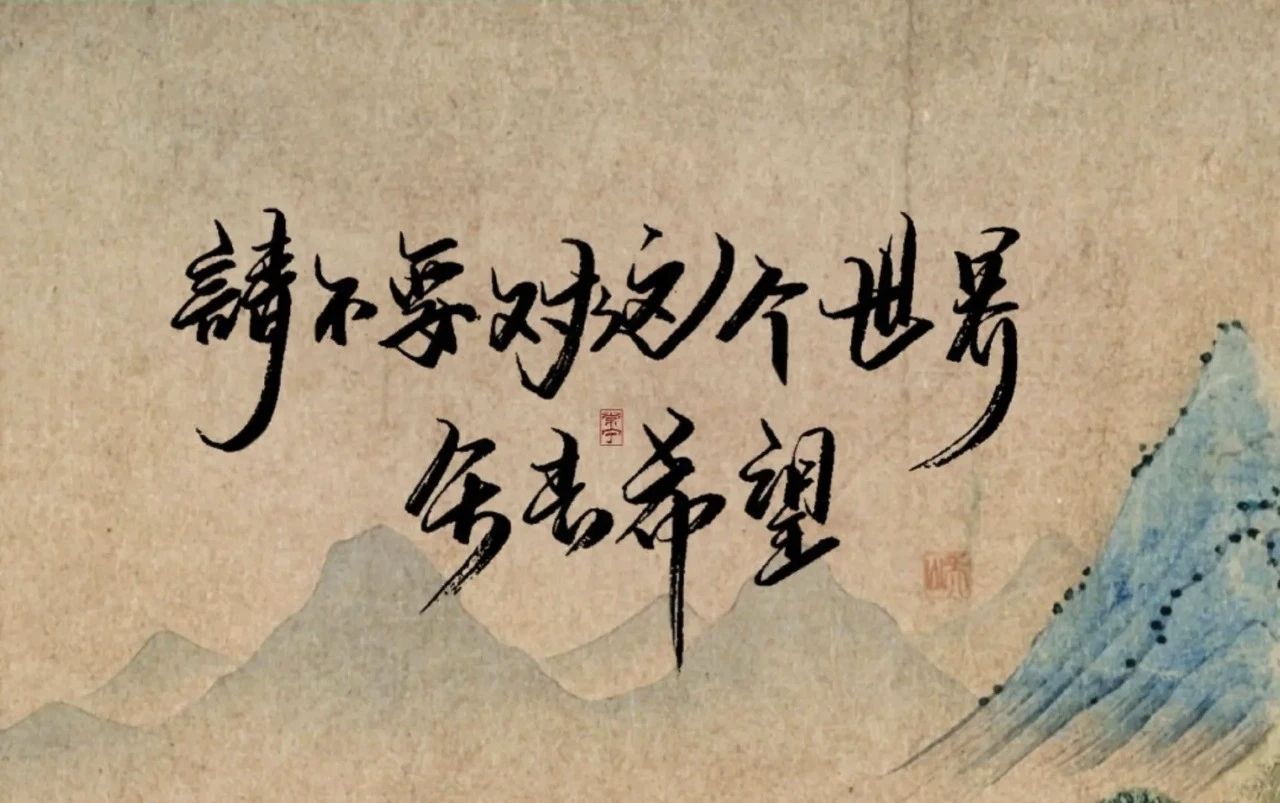 請不要对这个世界
失去希望